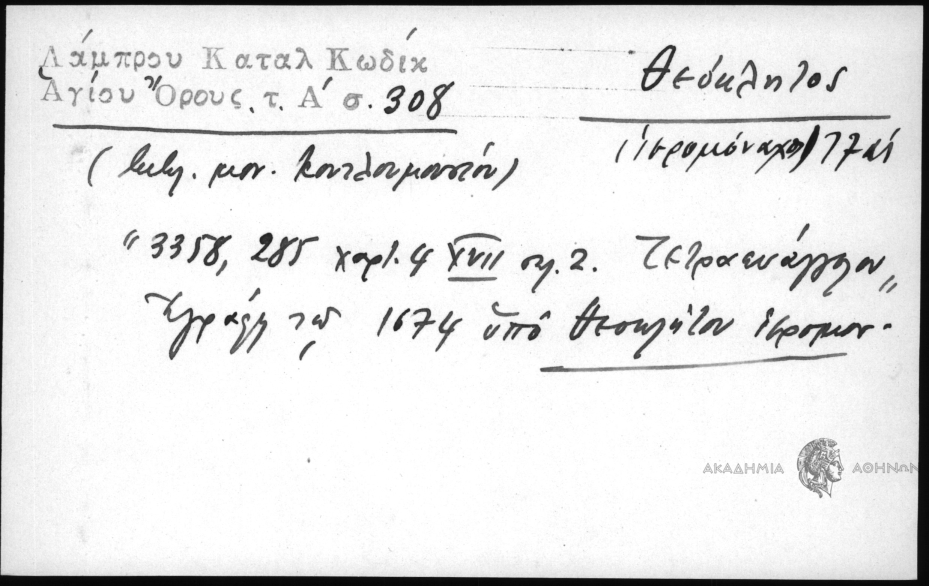 Λάμπρου Καταλ Κωδίκ
Ἁγίου Ὄρους. τ. Α΄ σ. 308
Θεόκλητος
(ἱερομόναχος) 17 αἰ
( μον. Κουτλουμουσίου)
"3358, 285 χαρτ. 4 XVII 2. Τετραευάγγελον"
Ἐγράφη τῷ 1674 ὑπὸ Θεοκλήτου ἱερομον.
ΑΚΑΔΗΜΙΑ ΑΘΗΝΩΝ